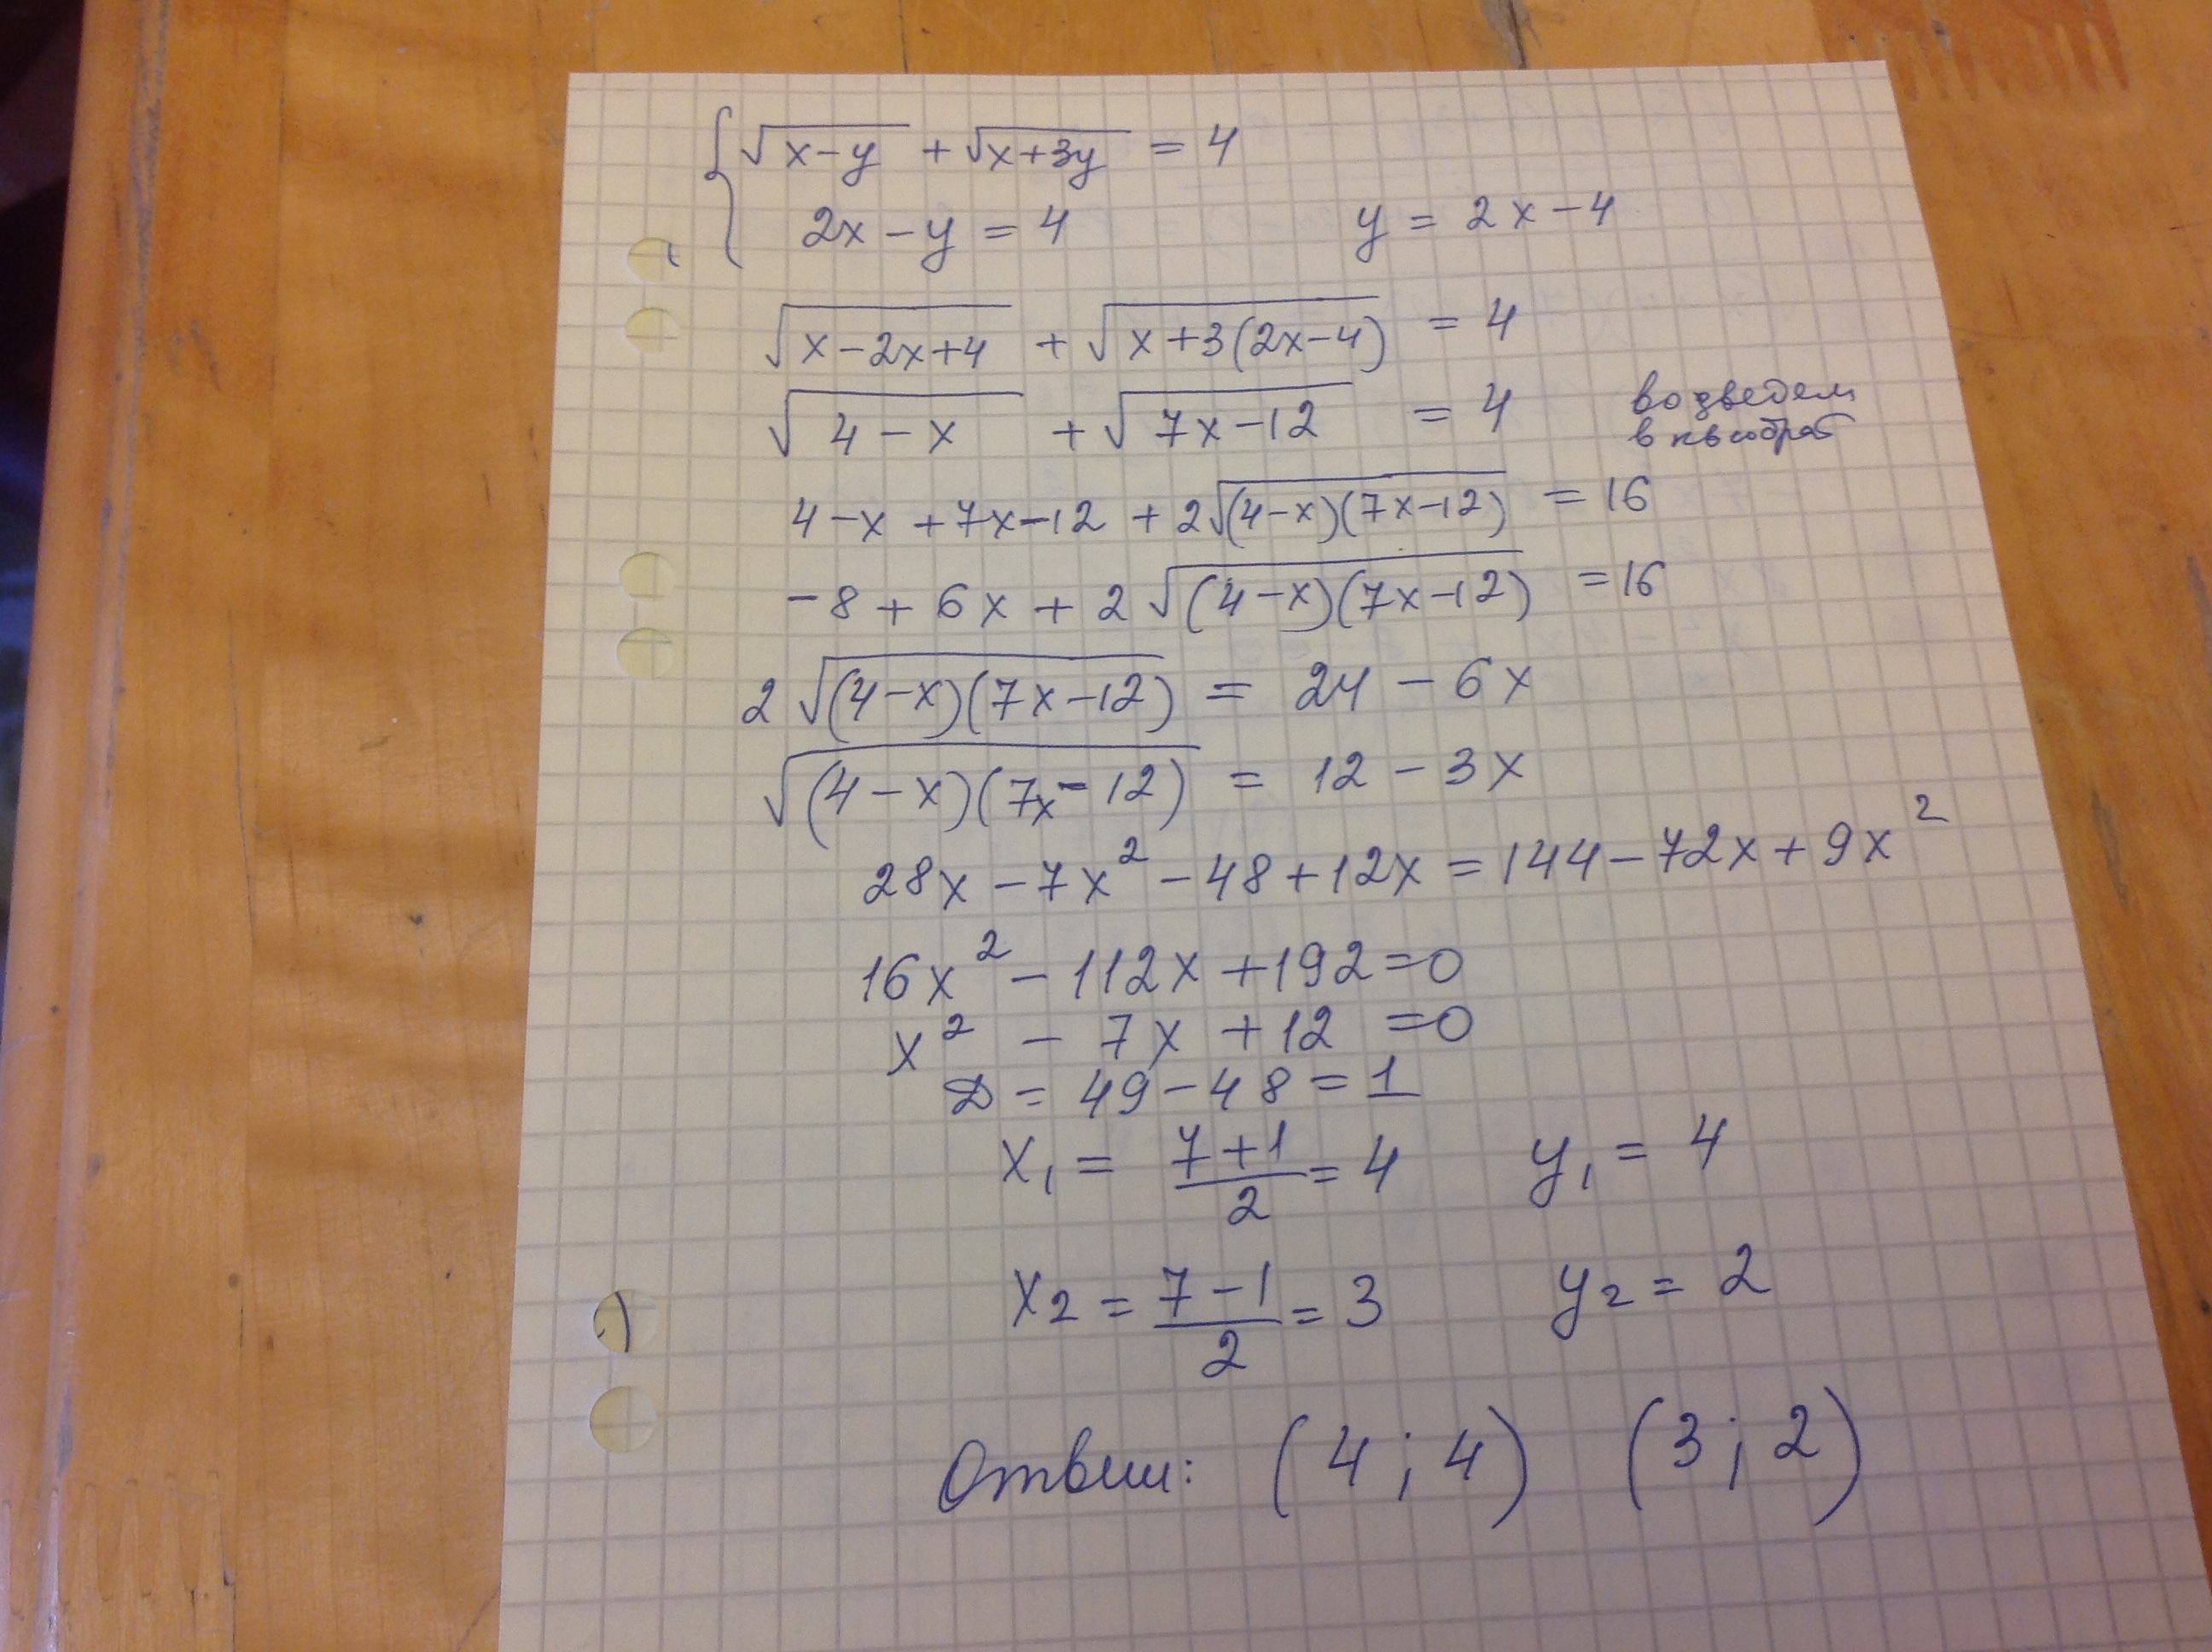 { √(x-y) + √(x+3y) = 4
2x - y = 4 y = 2x - 4
√(x-2x+4) + √(x+3(2x-4)) = 4
√(4-x) + √(7x-12) = 4 возведем
в квадрат
4-x+7x-12+2√((4-x)(7x-12)) = 16
-8+6x+2√((4-x)(7x-12)) = 16
2√((4-x)(7x-12)) = 24-6x
√((4-x)(7x-12)) = 12-3x
28x-7x²-48+12x=144-72x+9x²
16x²-112x+192=0
x²-7x+12=0
D=49-48=1
x₁ = (7+1)/2 = 4 y₁ = 4
x₂ = (7-1)/2 = 3 y₂ = 2
Ответ: (4; 4) (3; 2)